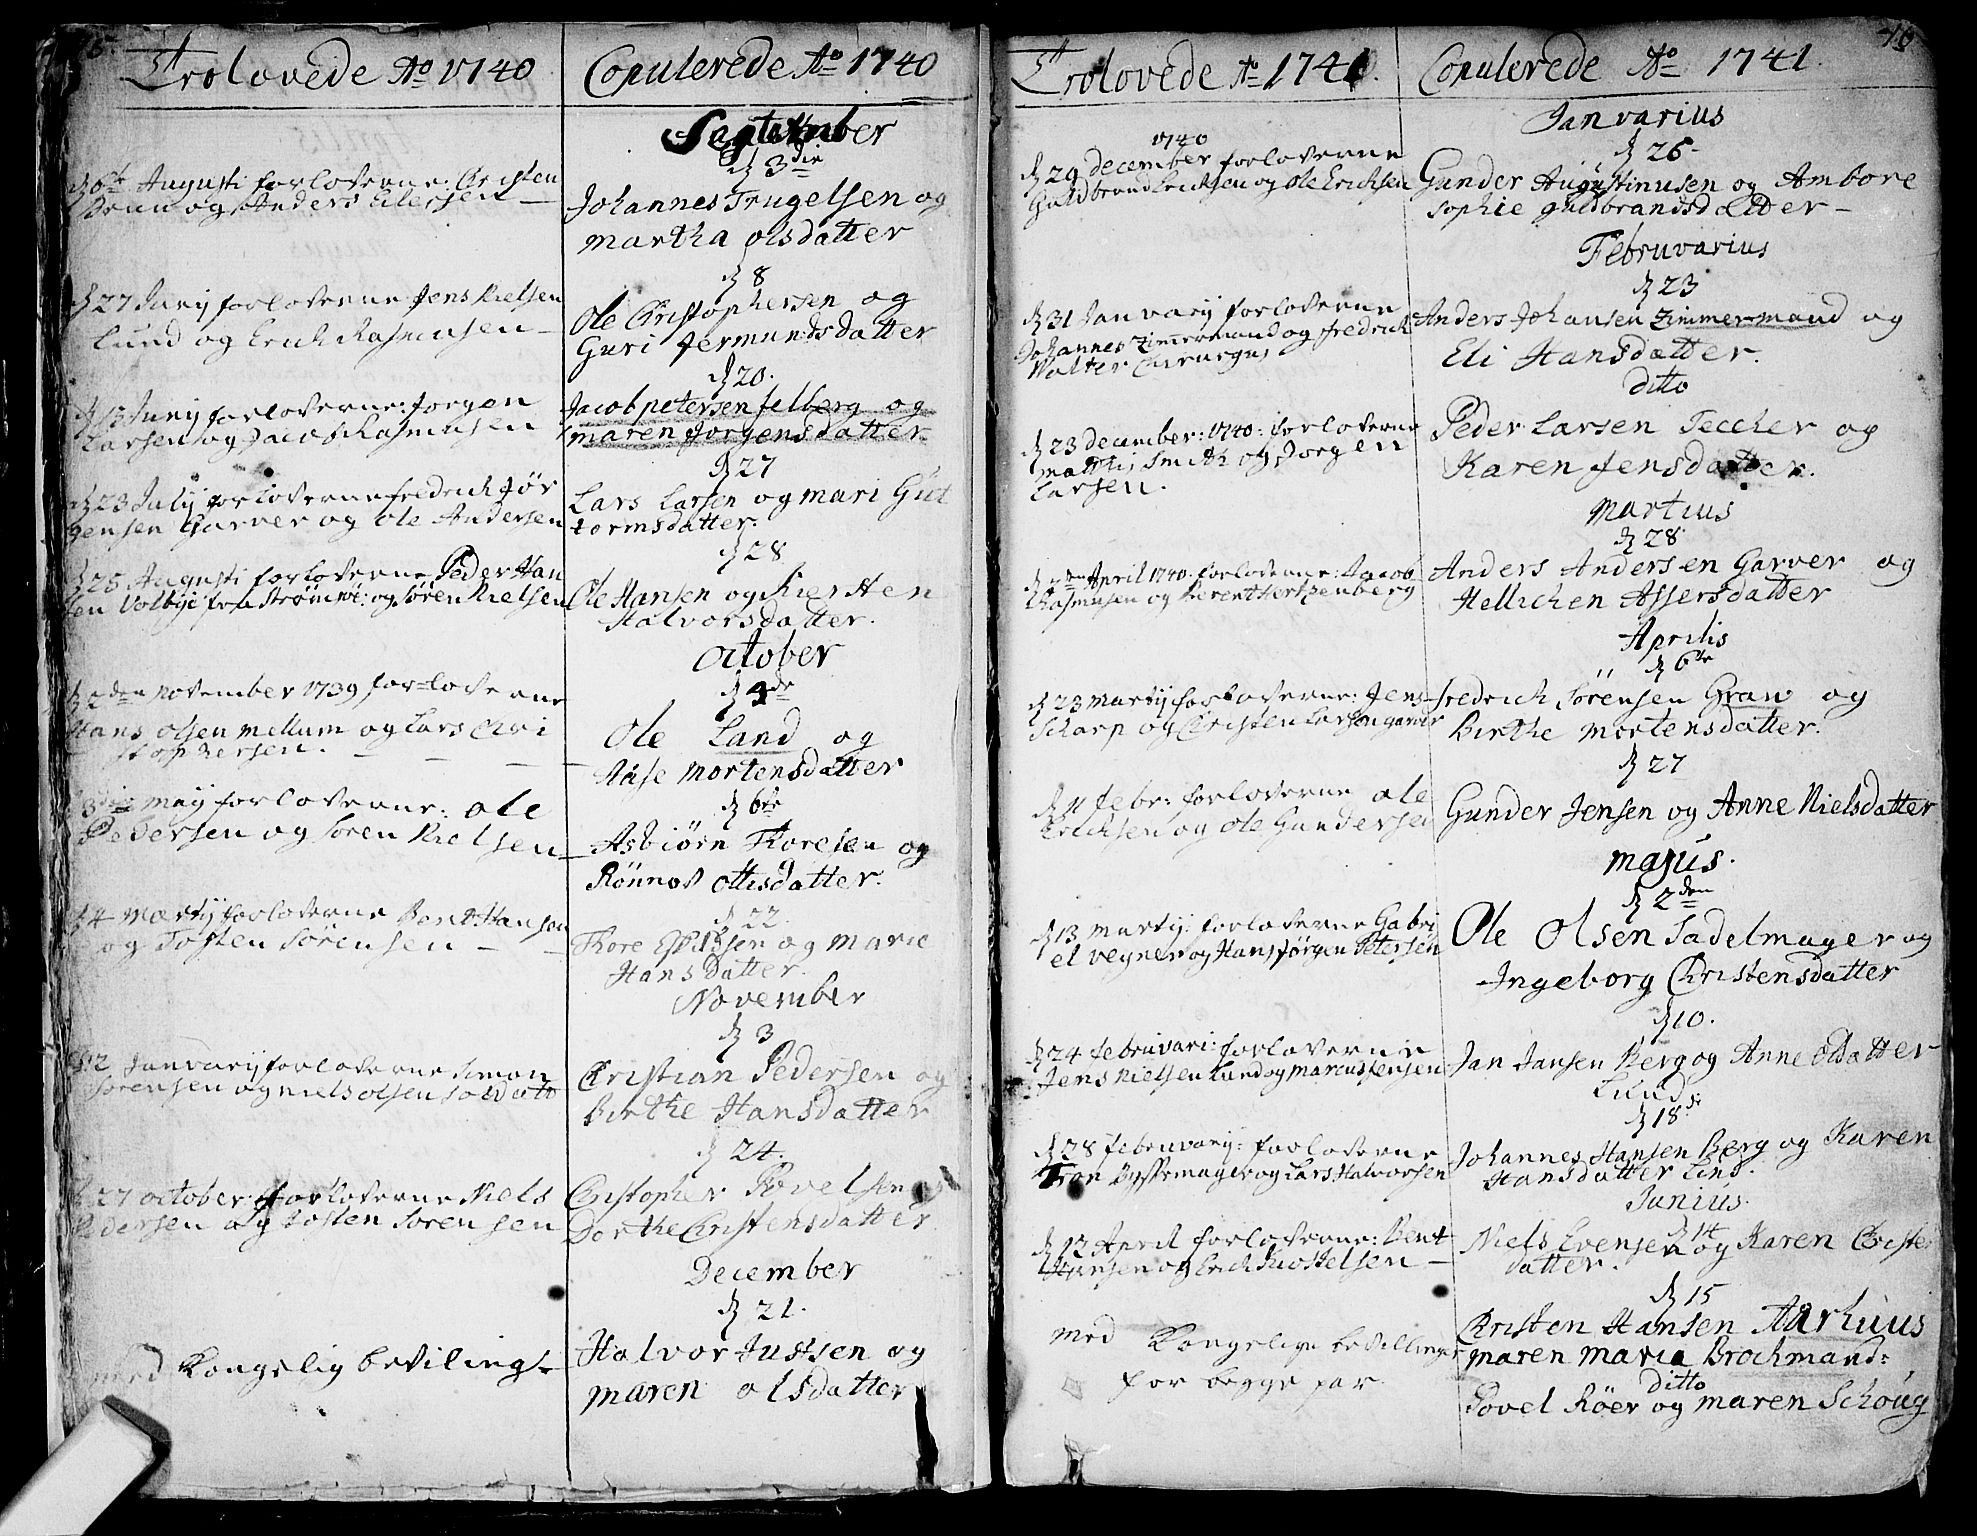 Trolovede Ao 1740
d 6te Augusti forloverne: Christen
Brun og Anders Eilersen
d 27 Junij forloverne Jens Nielsen
Lund og Erich Rasmusen
d 13 Junij forloverne: Jørgen
Larsen og Jacob Rasmusen
d 23 July forloverne fredrich Jør
gensen Garver og Ole Andersen
d 25 Augusti forloverne Peder Han
sen Volbye fra Strømsøe: og Søren Nielsen
d 2den November 1739 forloverne
Hans Olsen Mellum og Lars Chri
stophersen.
d 3die Maij forloverne: Ole
Pedersen og Søren Nielsen
d 4 Martij forloverne Bent Hansen
og Tosten Sørensen
d 2 Januarij forloverne Simon
Sørensen og Niels Olsen Soldatt
d 27 October forloverne Niels
Pedersen og Tosten Sørensen
med Kongelig beviling
Copulerede Ao 1740
September
d 3die
Johannes Trugelsen og
Martha Olsdatter
d 8
Ole Christophersen og
Guri Jermundsdatter
d 20.
Jacob petersen felberg og
Maren Jørgensdatter
d 27
Lars Larsen og Mari Gut
tormsdatter:
d 28
Ole Hansen og Kiersten
Halvorsdatter.
October
d 4de
Ole Land og
Aase Mortensdatter
d 6te
Asbiørn Thoresen og
Rønnov Ottisdatter.
d 22
Thore Espensen og Marie
Hansdatter.
November
d 3
Christian Pedersen og
Birthe Hansdatter
d 24.
Christopher Povelsen og
Dorthe Christensdatter
December
d 21.
Halvor Justsen og
Maren Olsdatter
Trolovede Ao 1741.
1740
d 29 december forloverne
Guldbrand Ericksen og Ole Ericksen
d 31 Janvarij forloverne
Johannes Zimmermand og fredrich
Wolter Chirurgus
d 23 december: 1740: forloverne
Matthis Smith og Jørgen
Larsen.
April 1740. forloverne: Jacob
Rasmusen og Berent Hertzenberg
d 23 Martij forloverne: Jens
Scharp og Christen Larsen garver
d 11 febr: forloverne Ole
Ericksen og Ole Gundersen
d 13 Martij: forloverne Gabri
el Vegner og Hans Jørgen Petersen
d 24 februvari: forloverne
Jens Nielsen Lund og Marcus Jensen
d 28 februvarij: forloverne
Tron Byssemager og Lars Halvorsen
d 12 April forloverne: Bent
Hansen og Erich Kiostelsen
med Kongelige bevillinger
for begge par.
Copulerede Ao 1741.
Janvarius
d 26
Gunder Augustinusen og Ambore
Sophie guldbrandsdatter
Februvarius
d 23
Anders Johansen Zimmermand og
Eli Hansdatter.
ditto
Peder Larsen Teccher og
Karen Jensdatter.
Martius
d 28
Anders Andersen Garver og
Hellichen Assersdatter
Aprilis
d 6te
fredrich Sørensen Graw og
Birthe Mortensdatter.
d 27
Gunder Jensen og Anne Nielsdatter
Majus.
d 2den
Ole Olsen Sadelmager og
Ingeborg Christensdatter
d 10.
Jan Jansen Berg og Anne Olsdatter
Lund
d 18
Johannes Hansen Berg og Karen
Hansdatter Lind.
Junius.
d 14
Niels Evensen og Karen Christens
datter.
d 15
Christen Hansen Aarhuus
Maren Maria Brochmand:
ditto
Povel Röer og Maren Schoug